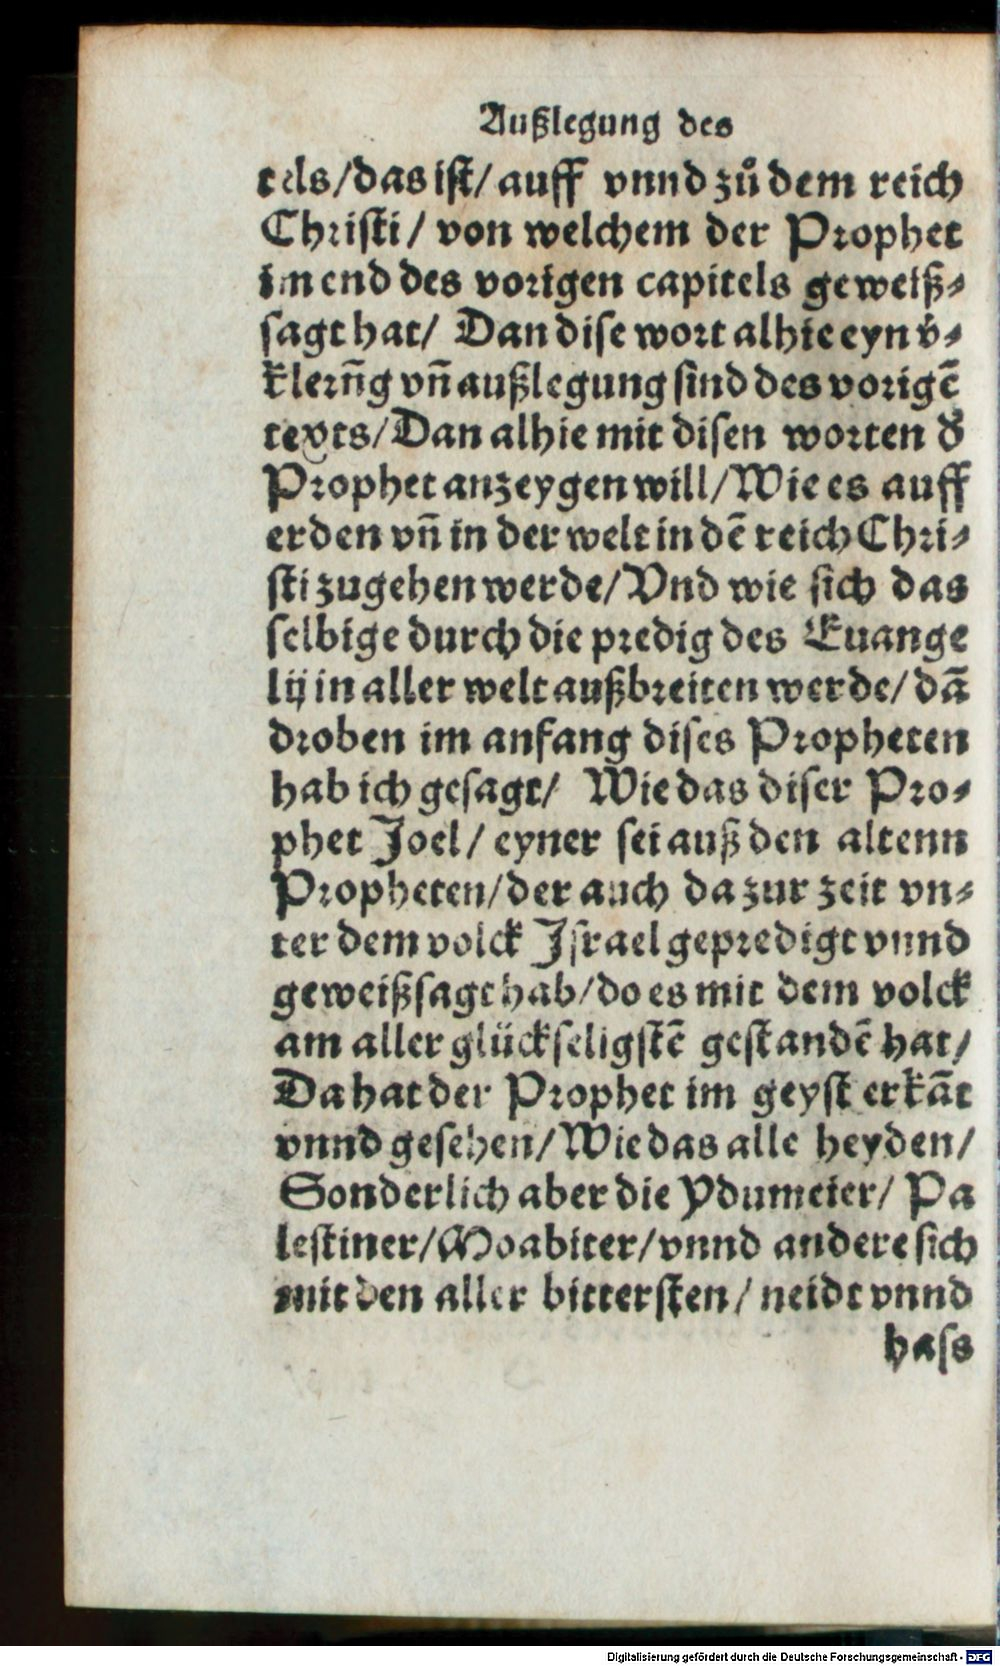 Außlegung des
tels/das iſt/ auff vnnd zů dem reich
Chriſti/ von welchem der Prophet
im end des vorigen capitels geweiß⸗
ſagt hat/ Dan diſe wort alhie eyn v̈⸗
klerūg vñ außlegung ſind des vorigē
texts/Dan alhie mit diſen worten ð
Prophet anzeygen will/Wie es auff
erden vñ in der welt in dē reich Chri⸗
ſti zugehen werde/Vnd wie ſich das
ſelbige durch die predig des Euange
lij in aller welt außbreiten werde/ dā
droben im anfang diſes Propheten
hab ich geſagt/ Wie das diſer Pro⸗
phet Joel/ eyner ſei auß den altenn
Propheten/der auch da zur zeit vn⸗
ter dem volck Jſrael gepredigt vnnd
geweißſagt hab/do es mit dem volck
am aller glückſeligſtē geſtandē hat/
Da hat der Prophet im geyſt erkāt
vnnd geſehen/Wie das alle heyden/
Sonderlich aber die Ydumeier/ Pa
leſtiner/Moabiter/vnnd andere ſich
mit den aller bitterſten/ neidt vnnd
haſs
Digitalisierung gefördert durch die Deutsche Forschungsgemeinschaft - DFG